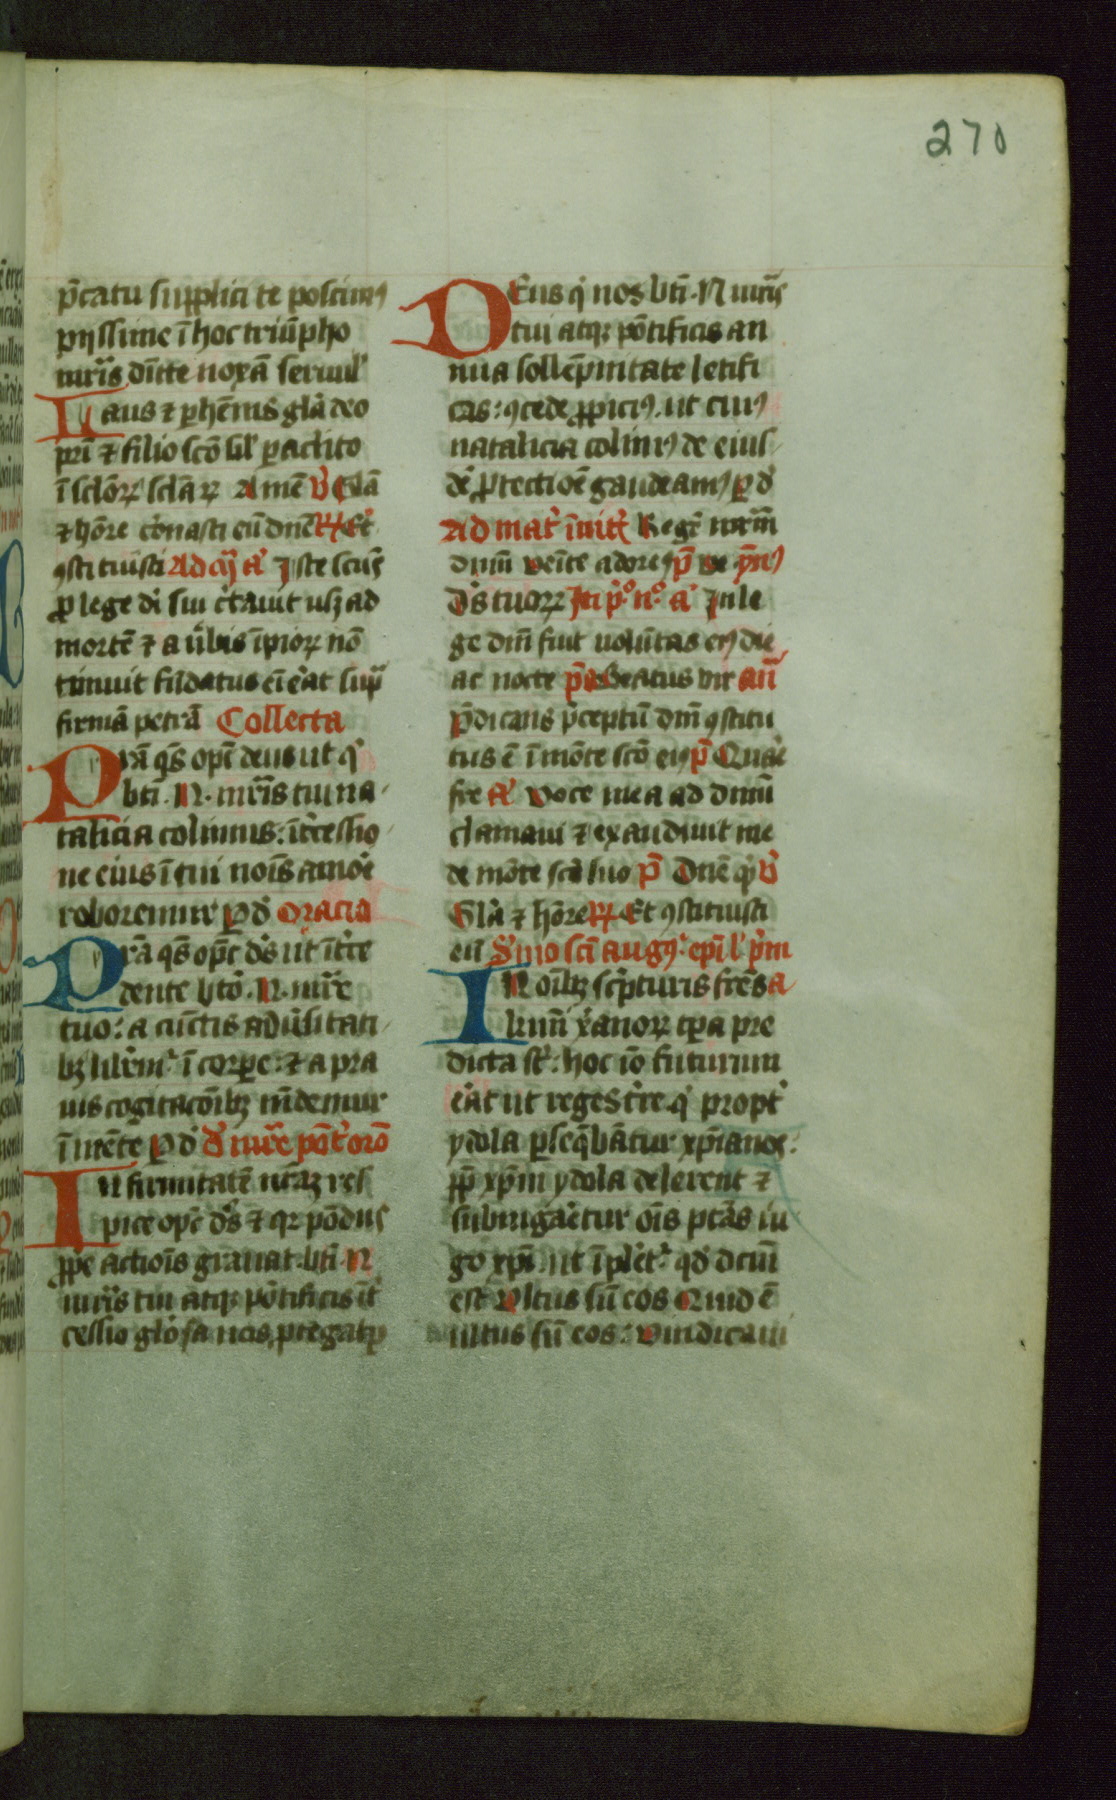 270
p̄catu supplici te poscim⁹
piissime ī hoc triūpho
mr̄is dīitte noxā seruul'
Laus ⁊ p̱hēnis gl̄a deo
pr̄i ⁊ filio scō sil' paclito
ī sclōꝝ scl̄a ꝝ Amē v̓ Glā
⁊ hōre cōnasti eū dn̄e ꝶ Et
ꝯstituisti Ad cāt a͛ Iste scūs
ꝓ lege dī sui c̓tauit usꝫ ad
mortē ⁊ a ūbis īpioꝝ nō
timuit fūdatus eī ēat sup̄
firmā petrā Collecta
Pr̄a qs̄ opc̄ deus ut q̓
bt̄i .N. mr̄is tui na
talicia colimus : īt̓cessio
ne eius ī tui noīs amoꝛe
roboremur ꝑ d̓ Oracio
Pr̄a qs̄ opc̄ d̄s ut īt̓ce
dente bt̄o .N. mr̄e
tuo : a cūctis adūsitati
bꝫ lib̓em͛ ī corꝑe : ⁊ a pra
uis cogitacōibꝫ mūdemur
ī mēte ꝑ d̓ D̓ mr̄e pōt̓ orō
Infirmitatē nr̄aꝫ res
pice opc̄ d̄s ⁊ qꝛ pōdus
ꝓpe actiōis grauat bt̄i N
mr̄is tui atqꝫ pōtificis īt̓
cessio glōsa nos ꝓtegat ꝑ
Deus q̓ nos bt̄i .N mr̄is
tui atqꝫ pōtificis an
nua sollēpnitate letifi
cas : ꝯcede ꝓpici⁹ . ut cui⁹
natalicia colim⁹ de eius
dē ꝓtectiōe gaudeam⁹ ꝑ d̓
Ad mat̓ īuit̓ Regē mr̄m
dn̄m venīte adorem⁹ p̄s Ve
d̄s tuoꝝ In p̓º nº a͛ In le
ge dn̄i fuit volūtas ei⁹ die
ac nocte p̄s Beatus vir an̄
p̄dicans p̄ceptū dn̄i ꝯstitu
tus ē ī mōte scō ei⁹ p̄s Quar̄e
fre a͛ Voce mea ad dn̄m
clamaui ⁊ exaudiuit me
de mōte scō suo p̄s Dn̄e q̓ v̓
Glā ⁊ hōre ꝶ Et ꝯstituisti
eū Sm̄o scī aug⁹ ep̄i l' p̓m
IN oībꝫ sc̓pturis frēs a
kmī xānoꝝ tp̄a pre
dicta st̄ : hoc iō futurum
ēat ut reges tr̄e q̓ propt̓
ydola ꝑseq̄bātur xp̄ianos :
ꝓp xp̄m ydola delerent ⁊
subiugaētur oīs ptās iu
go xp̄i . ut īplēt͛ qd̓ dcm̄
est Vltus sū eos Quid ē
ultus sū eos : Vindicaui